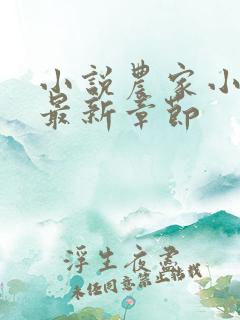 小説農家小
最新章節
浮生夜盡
未经同意禁止转载